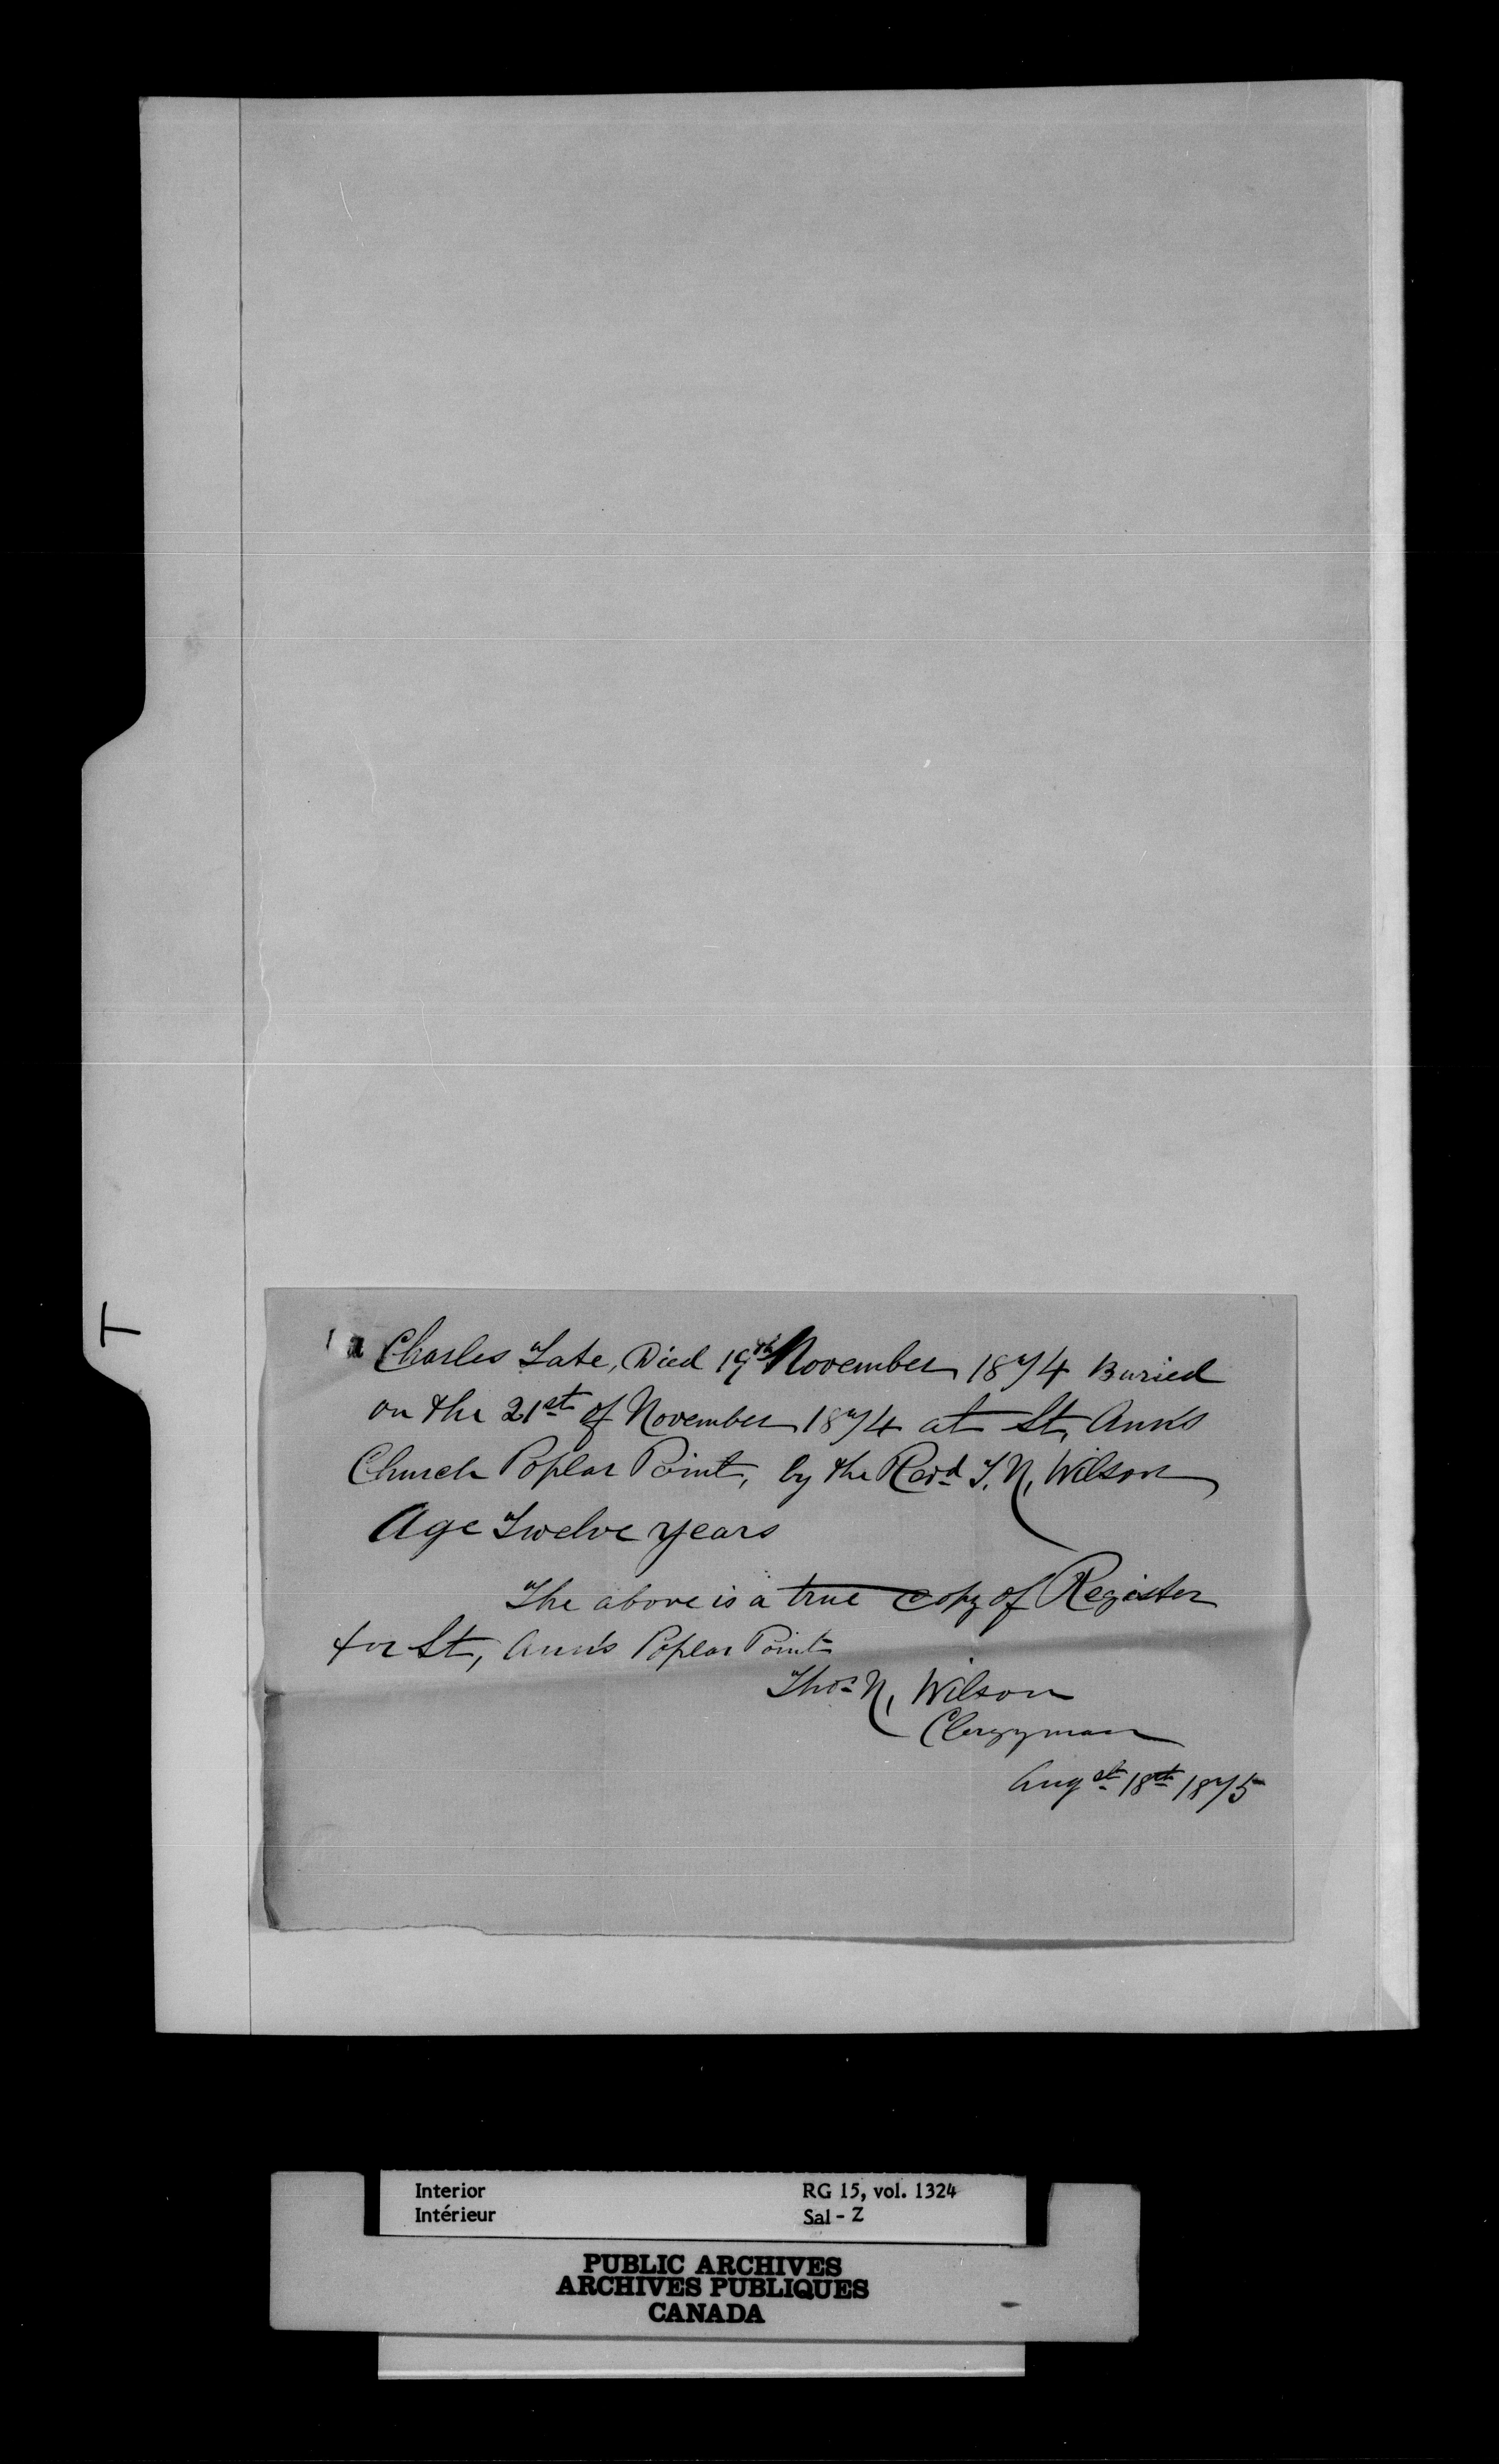 T
Charles Tate, Died 19th November 1874 Buried
on the 21st of November 1874 at St, Ann's
Church Poplar Point, by the Revd T. N, Wilson
Age Twelve years
The above is a true copy of Register
for St, Ann's Poplar Point
Thos N, Wilson
Clergyman
Augst 18th 1875
Interior RG 15, vol. 1324
Intérieur Sal - Z
PUBLIC ARCHIVES
ARCHIVES PUBLIQUES
CANADA